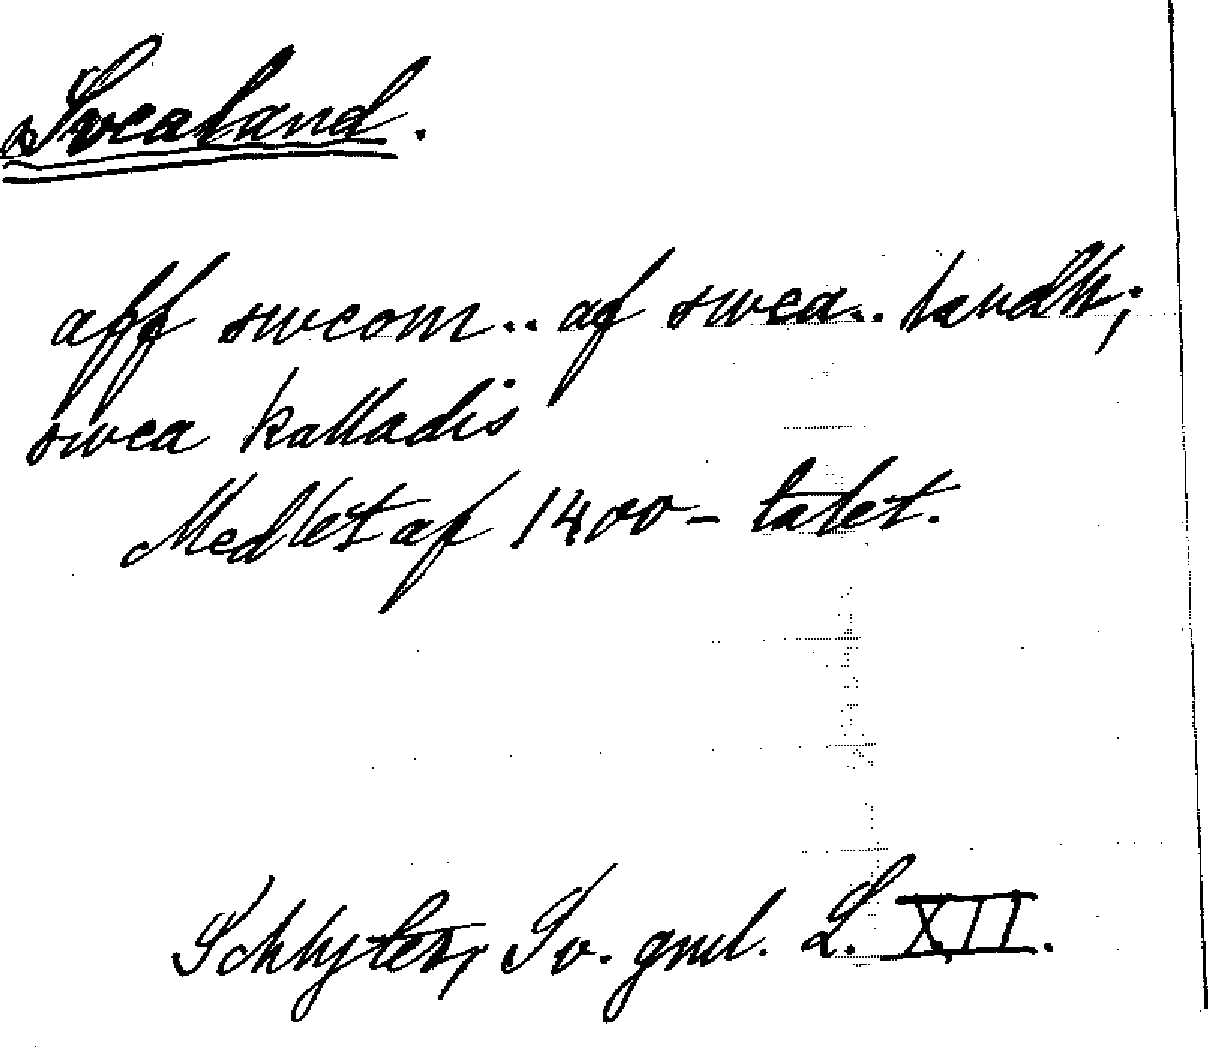 Svealand.
aff sweom.. af swea.. landh;
swea kalladis
Medlet af 1400-talet.
Schlyter, Sv. gml. L. XII.